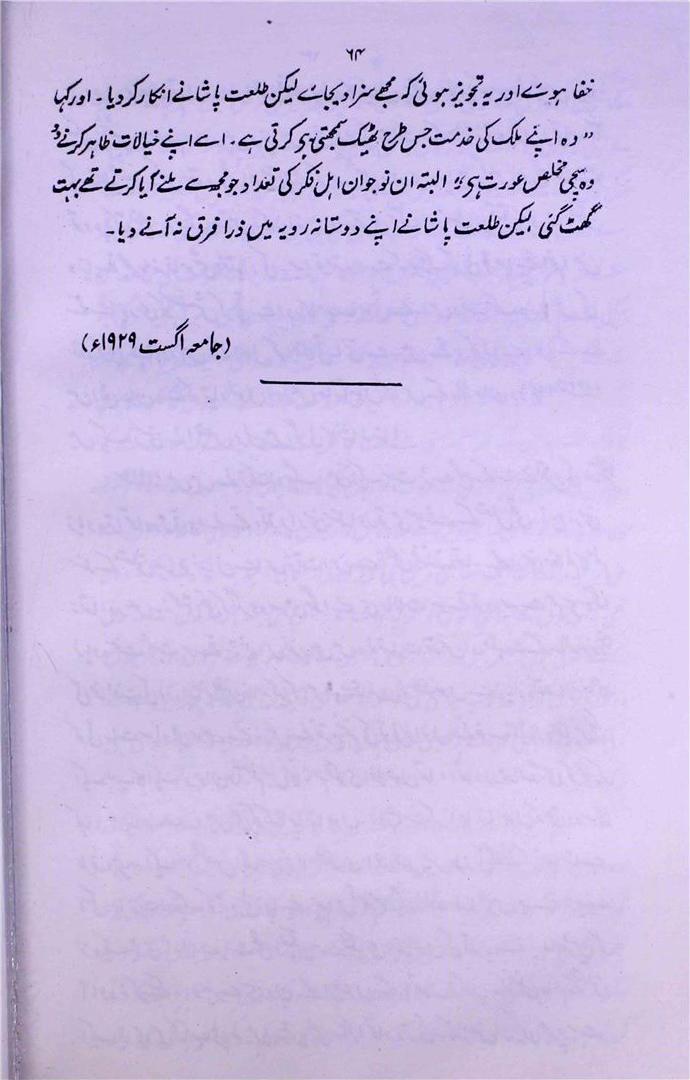 ۶۴
خفا ہوئے اور یہ تجویز ہوئی کہ مجھے سزا دیجائے لیکن طلعت پاشا نے انکار کر دیا ۔ اور کہا
" وہ اپنے ملک کی خدمت جس طرح ٹھیک سمجھتی ہی کرتی ہے ۔ اسے اپنے خیالات ظاہر کرنے دو
وہ سچی مخلص عورت ہی " البتہ ان نوجوان اہل فکر کی تعداد جو مجھسے ملنے آیا کرتے تھے بہت
گھٹ گئی لیکن طلعت پاشا نے اپنے دوستانہ رویہ میں ذرا فرق نہ آنے دیا ۔
(جامعہ اگست ۱۹۲۹ء)